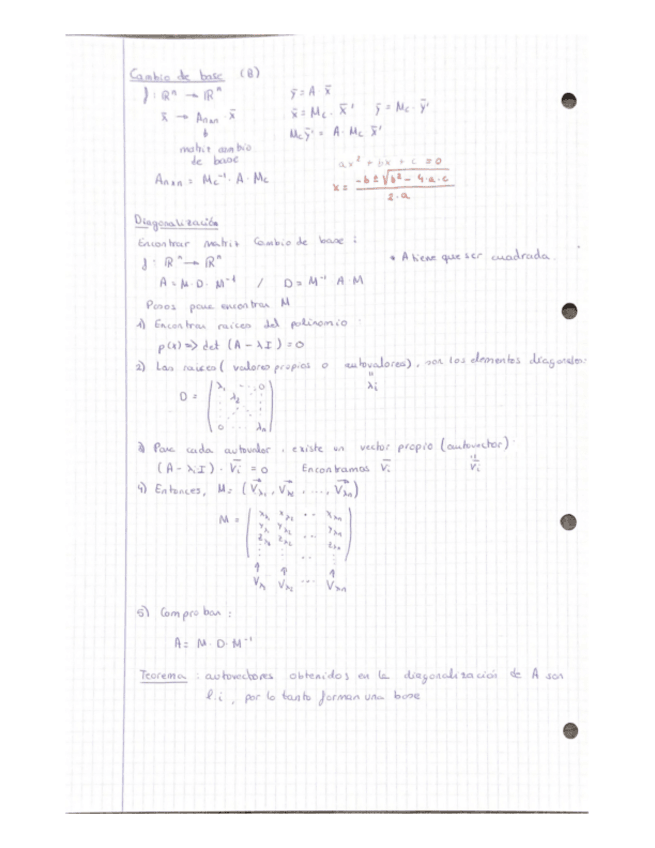 Cambio de base (B)
f: ℝⁿ → ℝⁿ ȳ = A · x̄
x̄ → Aₙₓₙ · x̄ x̄ = Mc · x̄' ȳ = Mc · ȳ'
↓ Mc ȳ' = A · Mc x̄'
matriz cambio
de base
Aₙₓₙ = Mc⁻¹ · A · Mc
ax² + bx + c = 0
x = (-b ± √(b² - 4·a·c)) / (2·a)
Diagonalización
Encontrar matriz cambio de base :
f: ℝⁿ → ℝⁿ * A tiene que ser cuadrada.
A = M · D · M⁻¹ / D = M⁻¹ · A · M
Pasos para encontrar M
1) Encontrar raíces del polinomio
p(λ) => det (A - λI) = 0
2) Las raíces ( valores propios o autovalores), son los elementos diagonales:
" λi
D = ( λ₁ ... 0
λ₂
0 ... λₙ )
3) Para cada autovalor, existe un vector propio (autovector)
(A - λiI) · V̄i = 0 Encontramos V̄i " V̄i
4) Entonces, M = (Vλ₁, Vλ₂, ..., Vλₙ)
M = ( xλ₁ xλ₂ .. xλₙ
yλ₁ yλ₂ .. yλₙ
zλ₁ zλ₂ .. zλₙ
: : .. : )
↑ ↑ ↑
Vλ₁ Vλ₂ ... Vλₙ
5) Comprobar :
A = M · D · M⁻¹
Teorema : autovectores obtenidos en la diagonalización de A son
l.i , por lo tanto forman una base